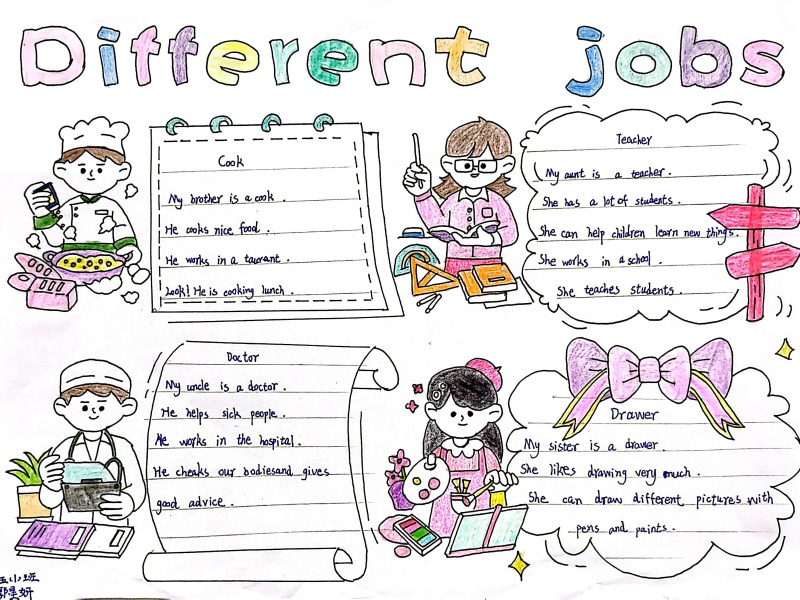 Different jobs
Cook
My brother is a cook.
He cooks nice food.
He works in a taurant.
Look! He is cooking lunch.
Teacher
My aunt is a teacher.
She has a lot of students.
She can help children learn new things.
She works in a school.
She teaches students.
Doctor
My uncle is a doctor.
He helps sick people.
He works in the hospital.
He cheaks our bodiesand gives
good advice.
Drawer
My sister is a drawer.
She likes drawing very much.
She can draw different pictures with
pens and paints.